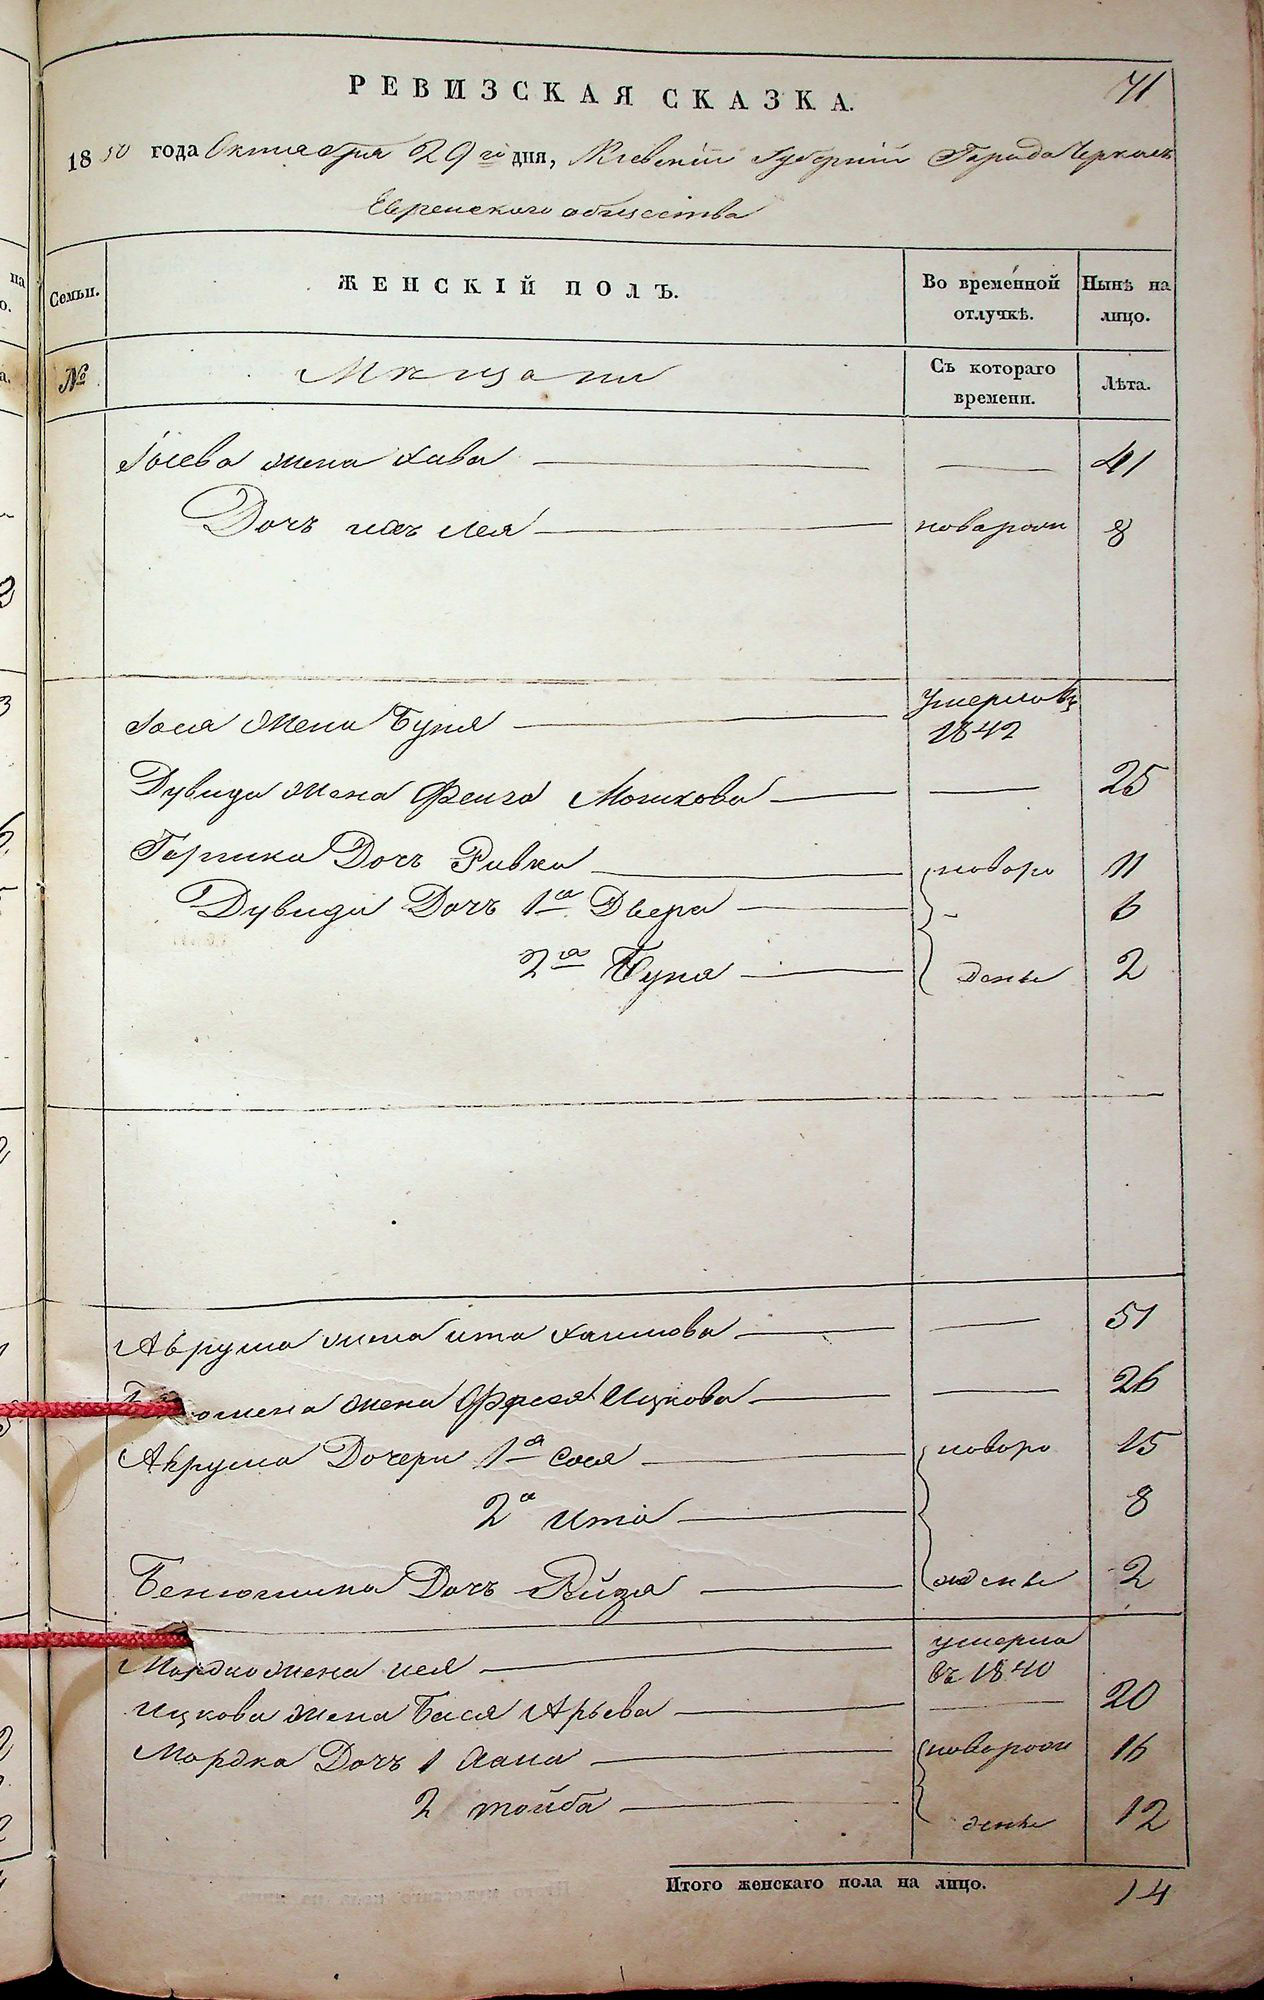 РЕВИЗСКАЯ СКАЗКА.
71
1850 года Октября 29го дня, Киевскій Губерніи Города Черкас
Евренского общества
Семьи.
ЖЕНСКІЙ ПОЛЪ.
Во вре́менной отлучкѣ.
Нынѣ на лицо.
№
Мещани
Съ котораго времени.
Лѣта.
жена Хава — — 41
Дочъ ихъ Лея — поворож 8
жена Буня — Умерла въ 1842
Дувида жена Фейга Мошкова — — 25
Гершка Дочъ Ривка — новоро 11
Дувида Дочъ 1я Двера — - 6
2я Буня — дены 2
Аврума жена Ита Хаимова — — 51
жена Ицкова — — 26
Аврума Дочери 1я Сося — новоро 15
2я Ита — 8
Бенюмина Дочъ Рейзя — жденны 2
жена Лея — умерла въ 1840
Ицкова жена Бася Арьева — — 20
Мордка Дочъ 1 Хана — новорож 16
2 тойба — дены 12
Итого женскаго пола на лицо. 14